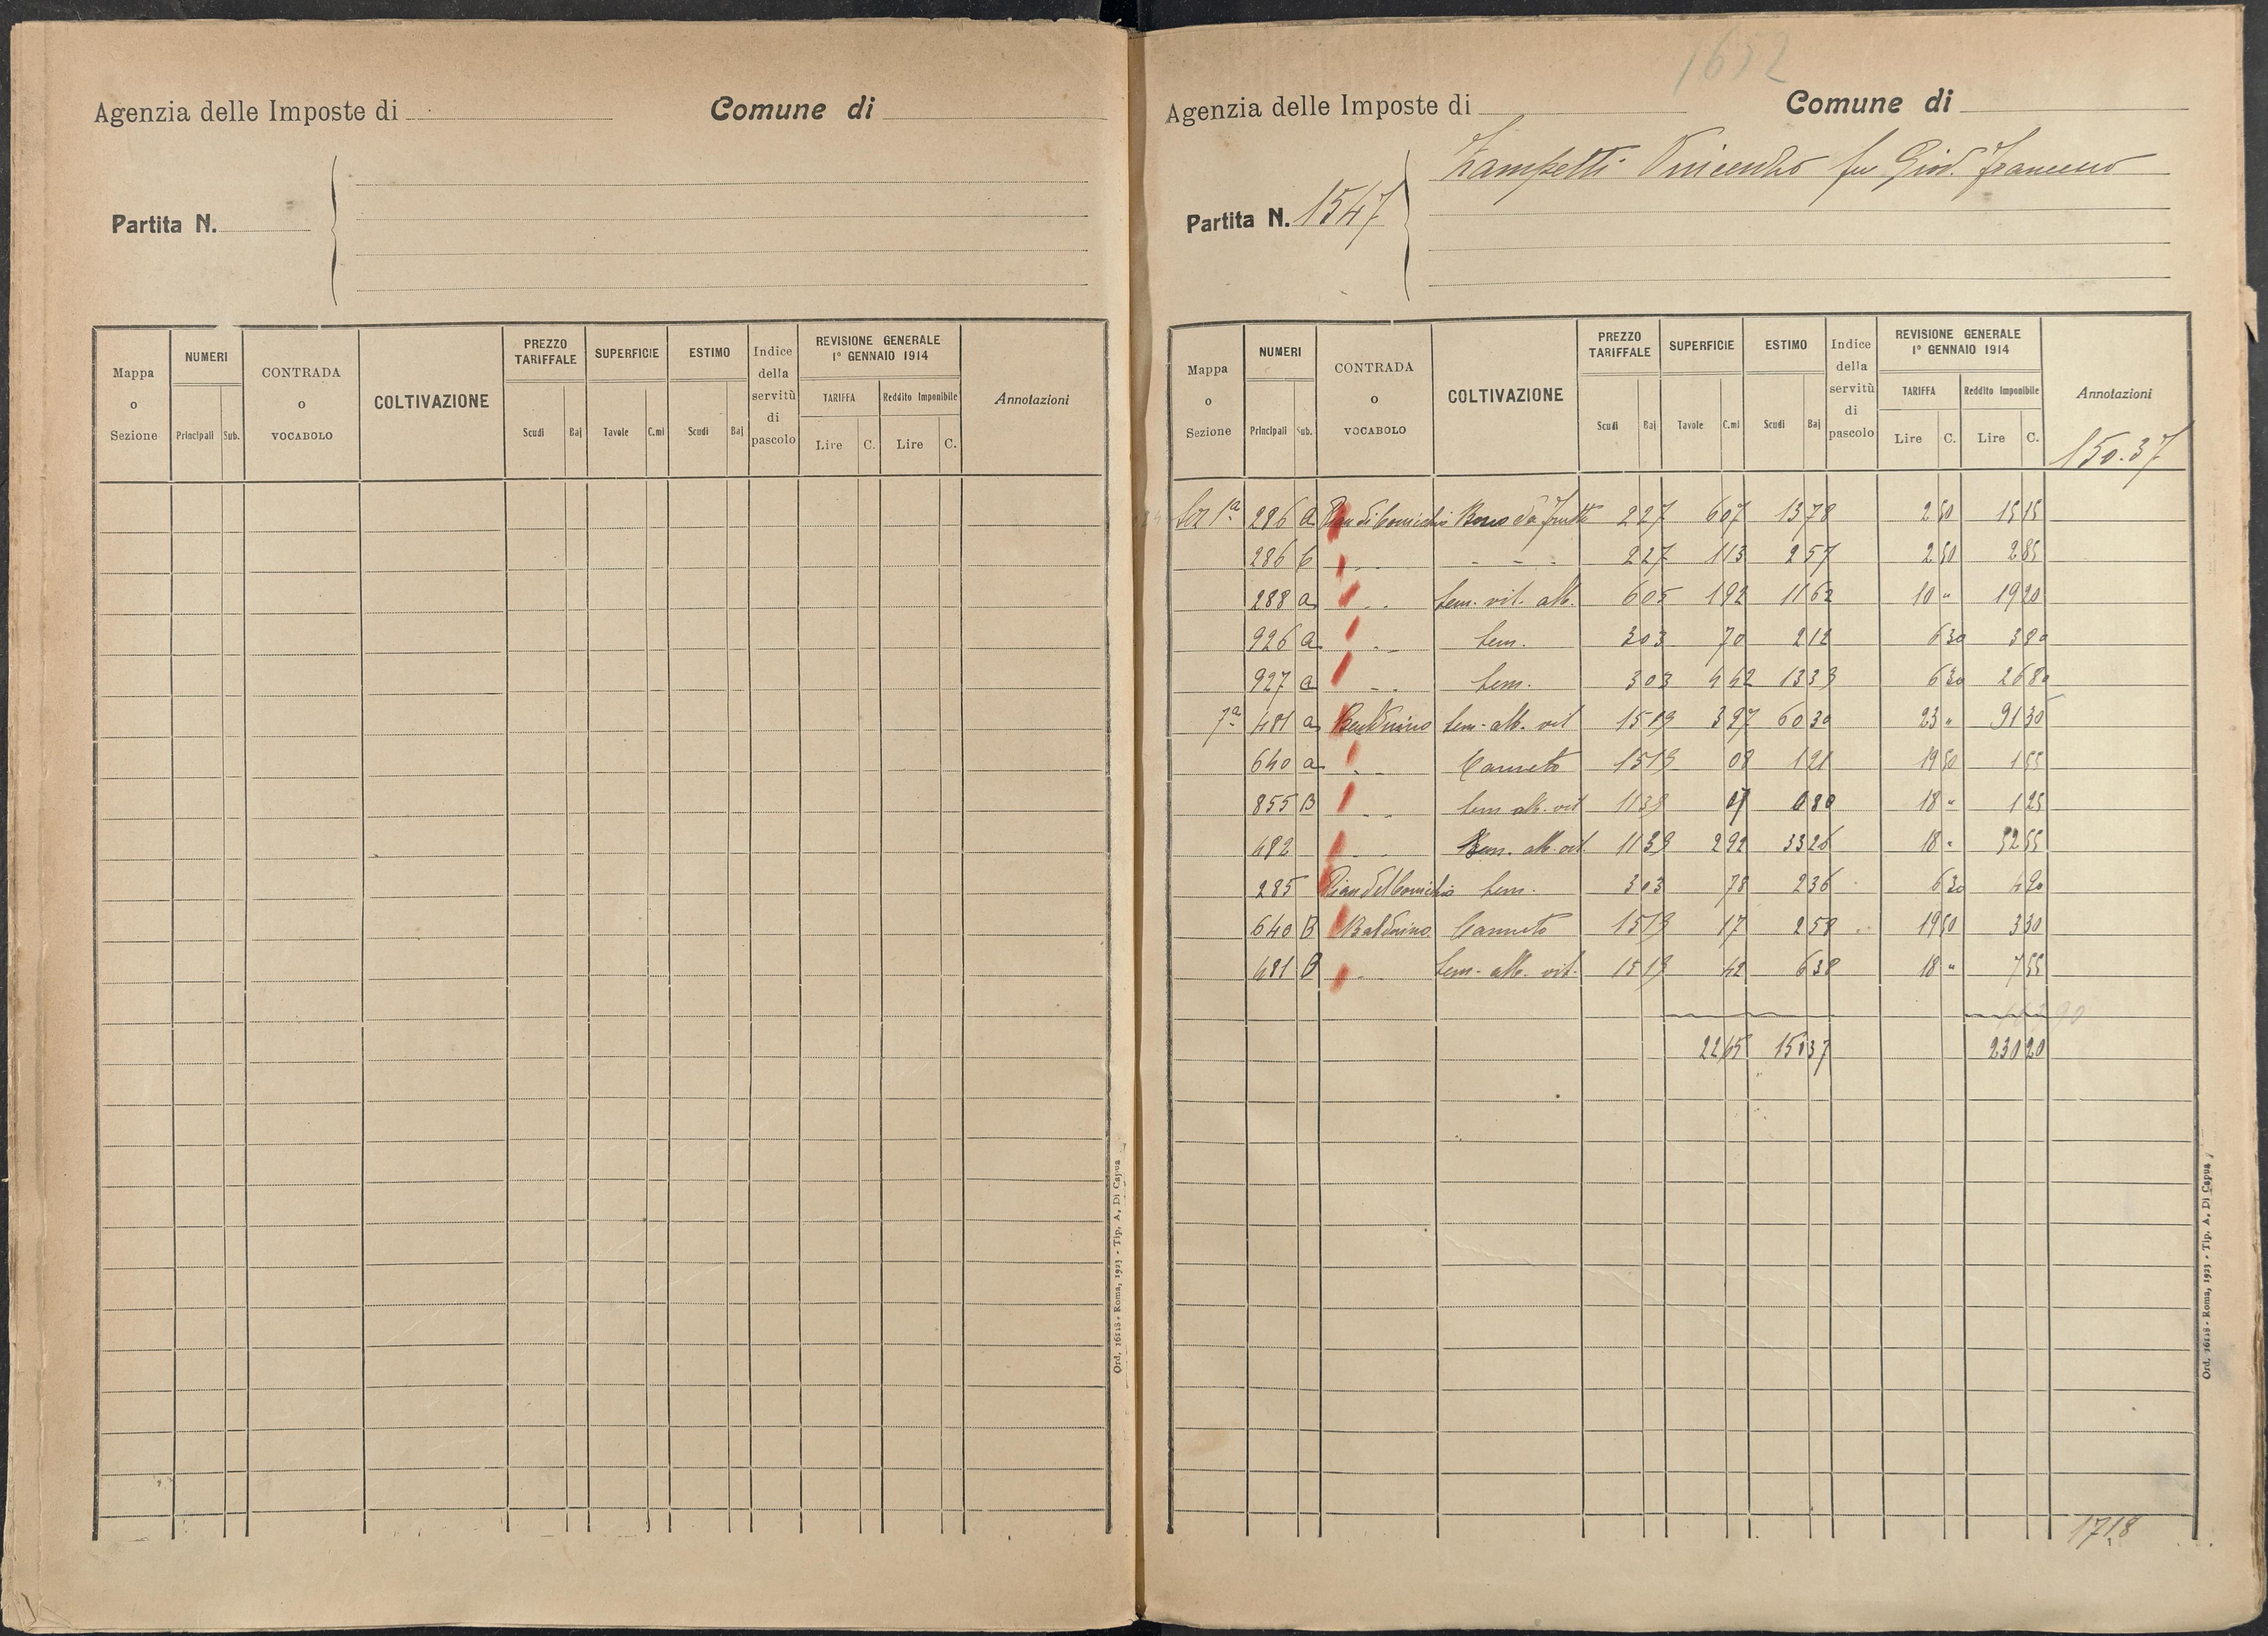 Agenzia delle Imposte di
Comune di
Partita N.
Mappa o Sezione
NUMERI
Principali
Sub.
CONTRADA o VOCABOLO
COLTIVAZIONE
PREZZO TARIFFALE
Scudi
Baj
SUPERFICIE
Tavole
C.mi
ESTIMO
Scudi
Baj
Indice della servitù di pascolo
REVISIONE GENERALE 1° GENNAIO 1914
TARIFFA
Lire
C.
Reddito Imponibile
Lire
C.
Annotazioni
Ord. 16118 - Roma, 1923 - Tip. A. Di Capua
1652
Agenzia delle Imposte di
Comune di
Zampetti Vincenzo fu Giov. Francesco
Partita N. 1547
Mappa o Sezione
NUMERI
Principali
Sub.
CONTRADA o VOCABOLO
COLTIVAZIONE
PREZZO TARIFFALE
Scudi
Baj
SUPERFICIE
Tavole
C.mi
ESTIMO
Scudi
Baj
Indice della servitù di pascolo
REVISIONE GENERALE 1° GENNAIO 1914
TARIFFA
Lire
C.
Reddito Imponibile
Lire
C.
Annotazioni
150.37
Sez 1a 286 a da frutto 2 27 6 07 13 78 2 50 15 15
286 b " " - - - 2 27 1 13 2 57 2 50 2 85
288 a " " Sem. vit. alb. 6 05 1 92 11 62 10 " 19 20
926 a " " Sem. 3 03 70 2 12 6 30 3 80
927 a " " Sem. 3 03 4 42 13 39 6 30 26 80
7a 481 a Sem. alb. vit 15 19 3 97 60 30 23 " 91 30
640 a " " Canneto 15 19 08 1 21 19 50 1 55
855 B " " Sem alb. vit 11 39 07 0 80 18 " 1 25
482 " " Sem. alb. vit. 11 39 2 92 33 26 18 " 52 55
285 Sem. 3 03 78 2 36 6 30 4 90
640 B Baldnino Canneto 15 19 17 2 58 19 50 3 30
481 B " " Sem. alb. vit. 15 19 42 6 38 18 " 7 55
22 65 150 37 230 20
1718
Ord. 16118 - Roma, 1923 - Tip. A. Di Capua